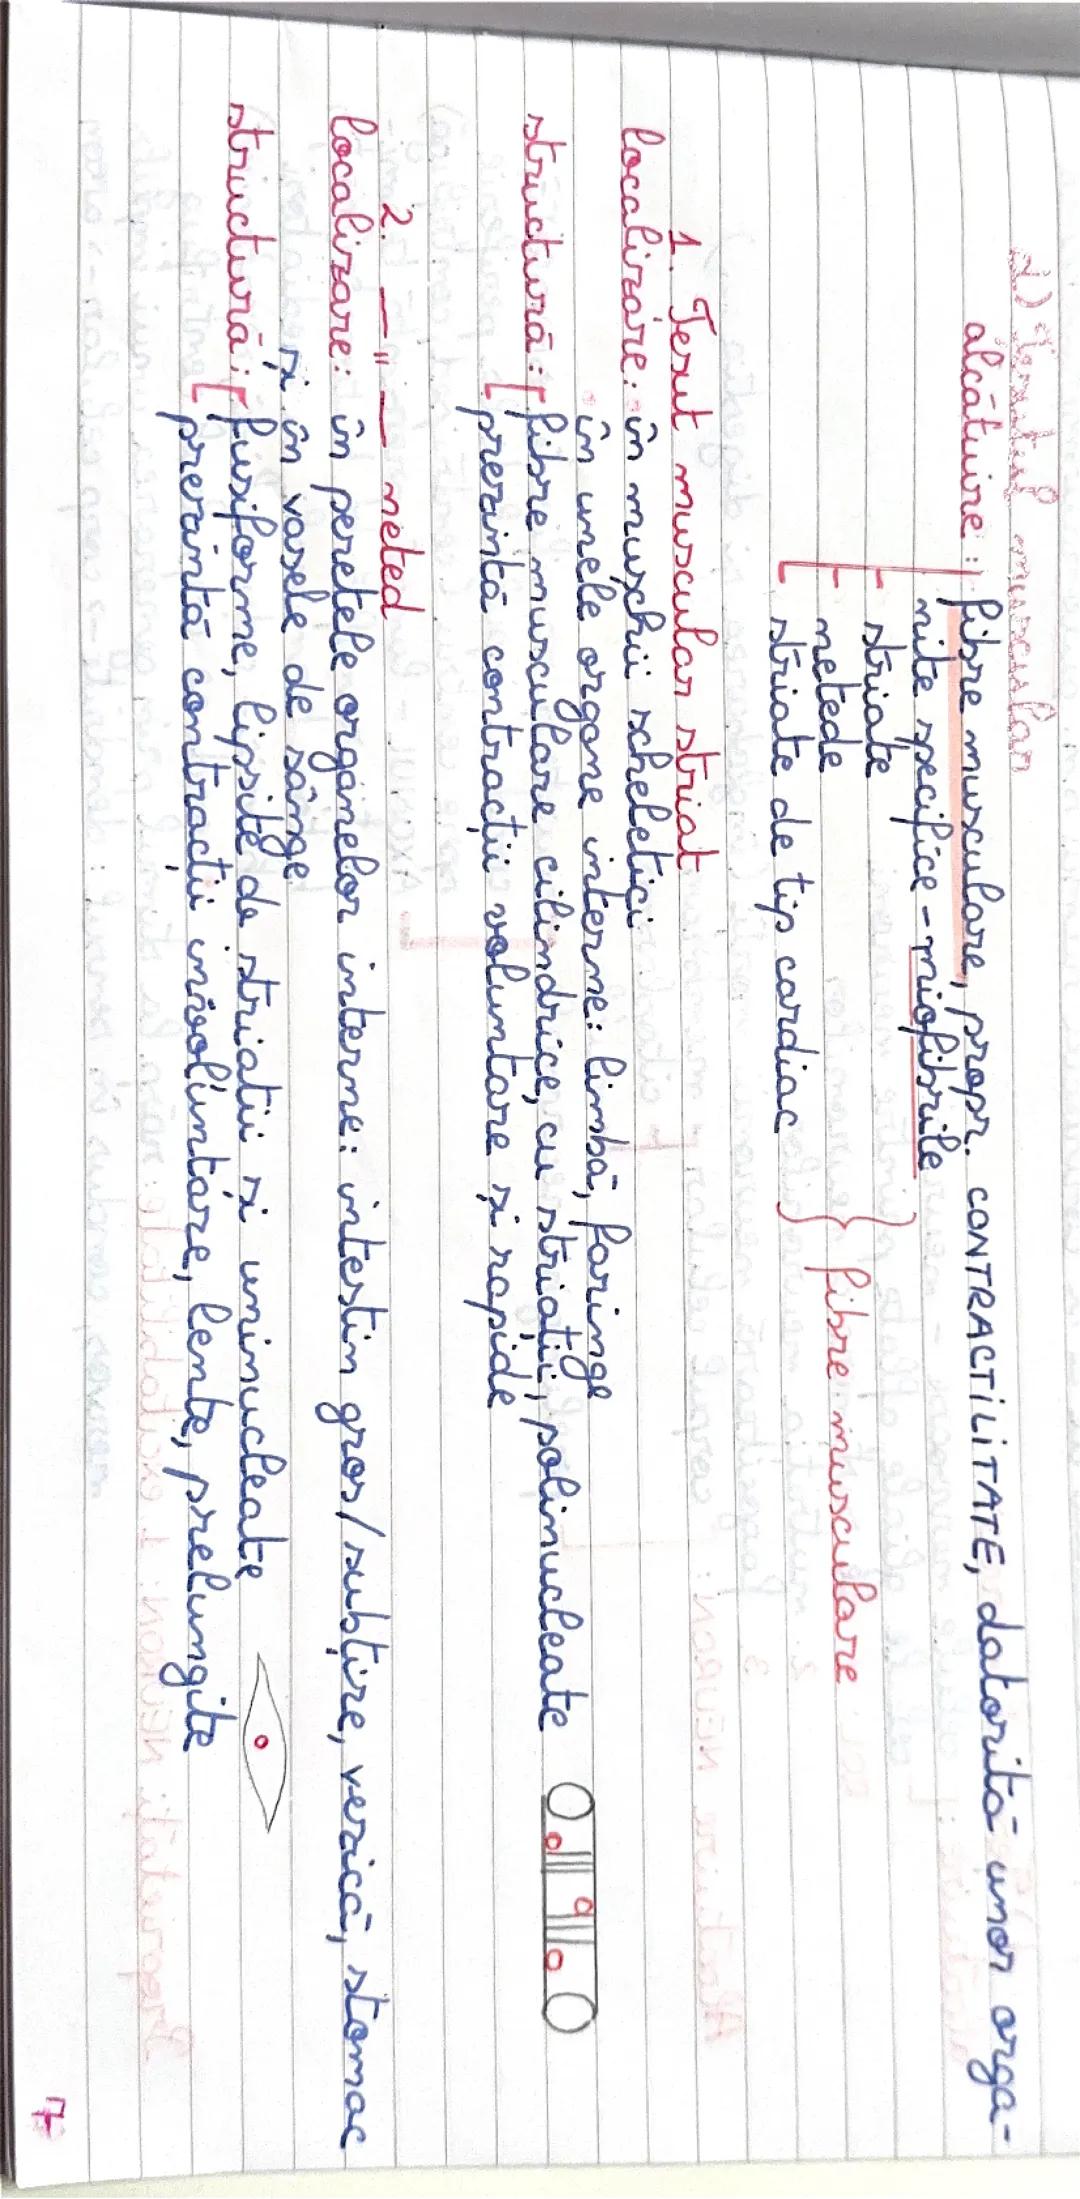 d.) Țesutul muscular
alcătuire: fibre musculare, propr. CONTRACTILITATE, datorită unor orga-
nite specifice - miofibrile
striate
netede
striate de tip cardiac
fibre musculare
1. Țesut muscular striat
localizare: în mușchii scheletici
în unele organe interne: limbă, faringe
structură: fibre musculare cilindrice, cu striații, polinucleate
prezintă contracții voluntare și rapide
2. —"— neted
localizare: în peretele organelor interne: intestin gros/subțire, vezică, stomac
și în vasele de sânge
structură: fusiforme, lipsite de striații și uninucleate
prezintă contracții involuntare, lente, prelungite
7